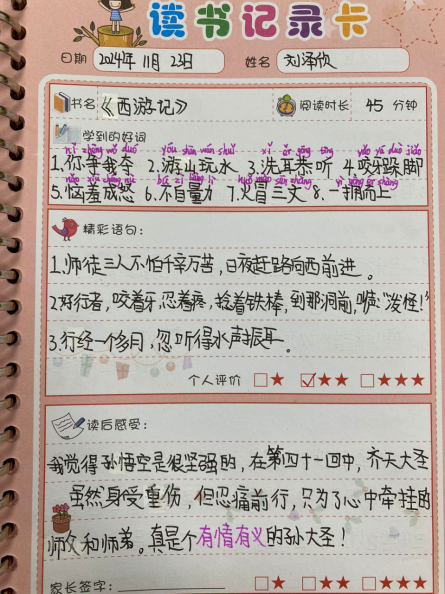 读书记录卡
日期 2024年11月23日 姓名 刘泽欣
书名 《西游记》 阅读时长 45 分钟
学到的好词
nǐ zhēng wǒ duó yóu shān wán shuǐ xǐ ěr gōng tīng yǎo yá duò jiǎo
1.你争我夺 2.游山玩水 3.洗耳恭听 4.咬牙跺脚
nǎo xiū chéng nù bú zì liàng lì huǒ mào sān zhàng yì yōng ér shàng
5.恼羞成怒 6.不自量力 7.火冒三丈 8.一拥而上
精彩语句:
1.师徒三人不怕千辛万苦,日夜赶路向西前进。
2.好行者,咬着牙,忍着疼,捻着铁棒,到那洞前,喊:“泼怪!”
3.行经一个多月,忽听得水声振耳。
个人评价 □★ ☑★★ □★★★
读后感受:
我觉得孙悟空是很坚强的,在第四十一回中,齐天大圣
虽然身受重伤,但忍痛前行,只为了心中牵挂的
师父和师弟。真是个有情有义的孙大圣!
家长签字: □★ □★★ □★★★